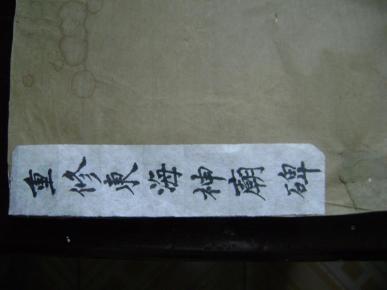 重修東海神廟碑